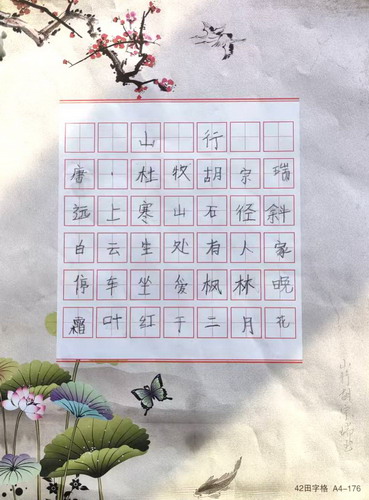 山行
唐·杜牧胡宗瑞
远上寒山石径斜
白云生处有人家
停车坐爱枫林晚
霜叶红于二月花
42田字格 A4-176